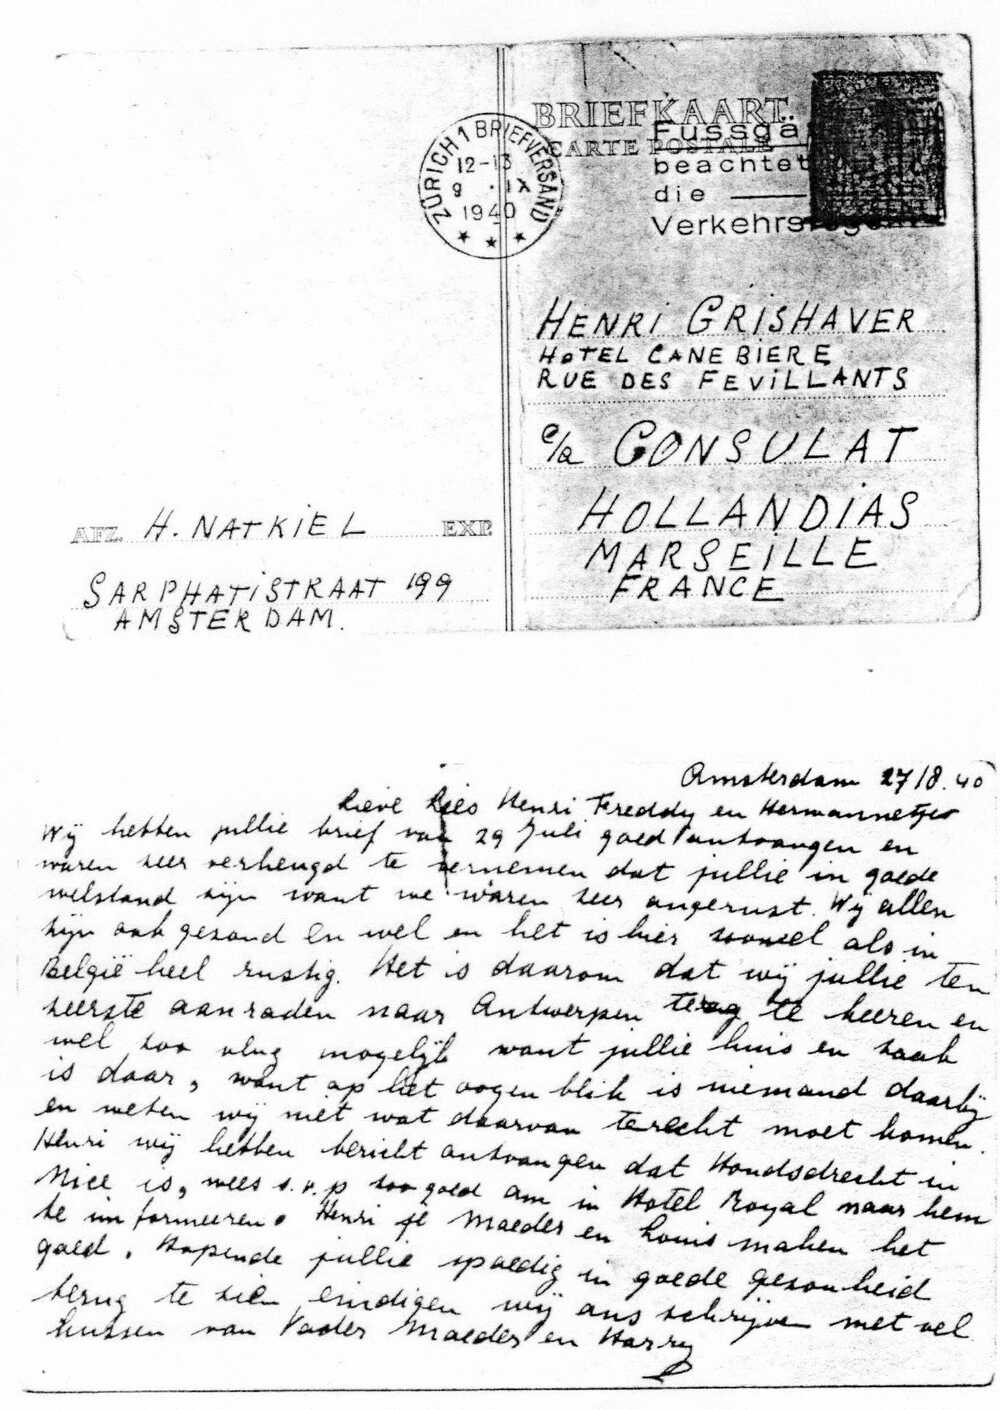 BRIEFKAART.
CARTE POSTALE
ZÜRICH 1 BRIEFVERSAND
12-13
9 · IX
1940
Fussgä
beachtet
die
Verkehrsregeln
HENRI GRISHAVER
HOTEL CANEBIERE
RUE DES FEVILLANTS
c/a CONSULAT
HOLLANDIAS
MARSEILLE
FRANCE
AFZ. H. NATKIEL EXP.
SARPHATISTRAAT 199
AMSTERDAM.
Amsterdam 27/8.40
Lieve Lies Henri Freddy en Hermannetjes
Wij hebben jullie brief van 29 Juli goed ontvangen en
waren zeer verheugd te vernemen dat jullie in goede
welstand zijn want we waren zeer ongerust. Wij allen
zijn ook gezond en wel en het is hier zoowel als in
België heel rustig. Het is daarom dat wij jullie ten
zeerste aanraden naar Antwerpen terug te keeren en
wel zoo vlug mogelijk want jullie huis en zaak
is daar, want op het oogen blik is niemand daarbij
en weten wij niet wat daarvan terecht moet komen.
Henri wij hebben bericht ontvangen dat Hondsdrecht in
Nice is, wees s.v.p zoo goed om in Hotel Royal naar hem
te informeeren. Henri je Moeder en Louis maken het
goed. Hopende jullie spoedig in goede gezonheid
terug te zien eindigen wij ons schrijven met vel
kussen van Vader Moeder en Harry